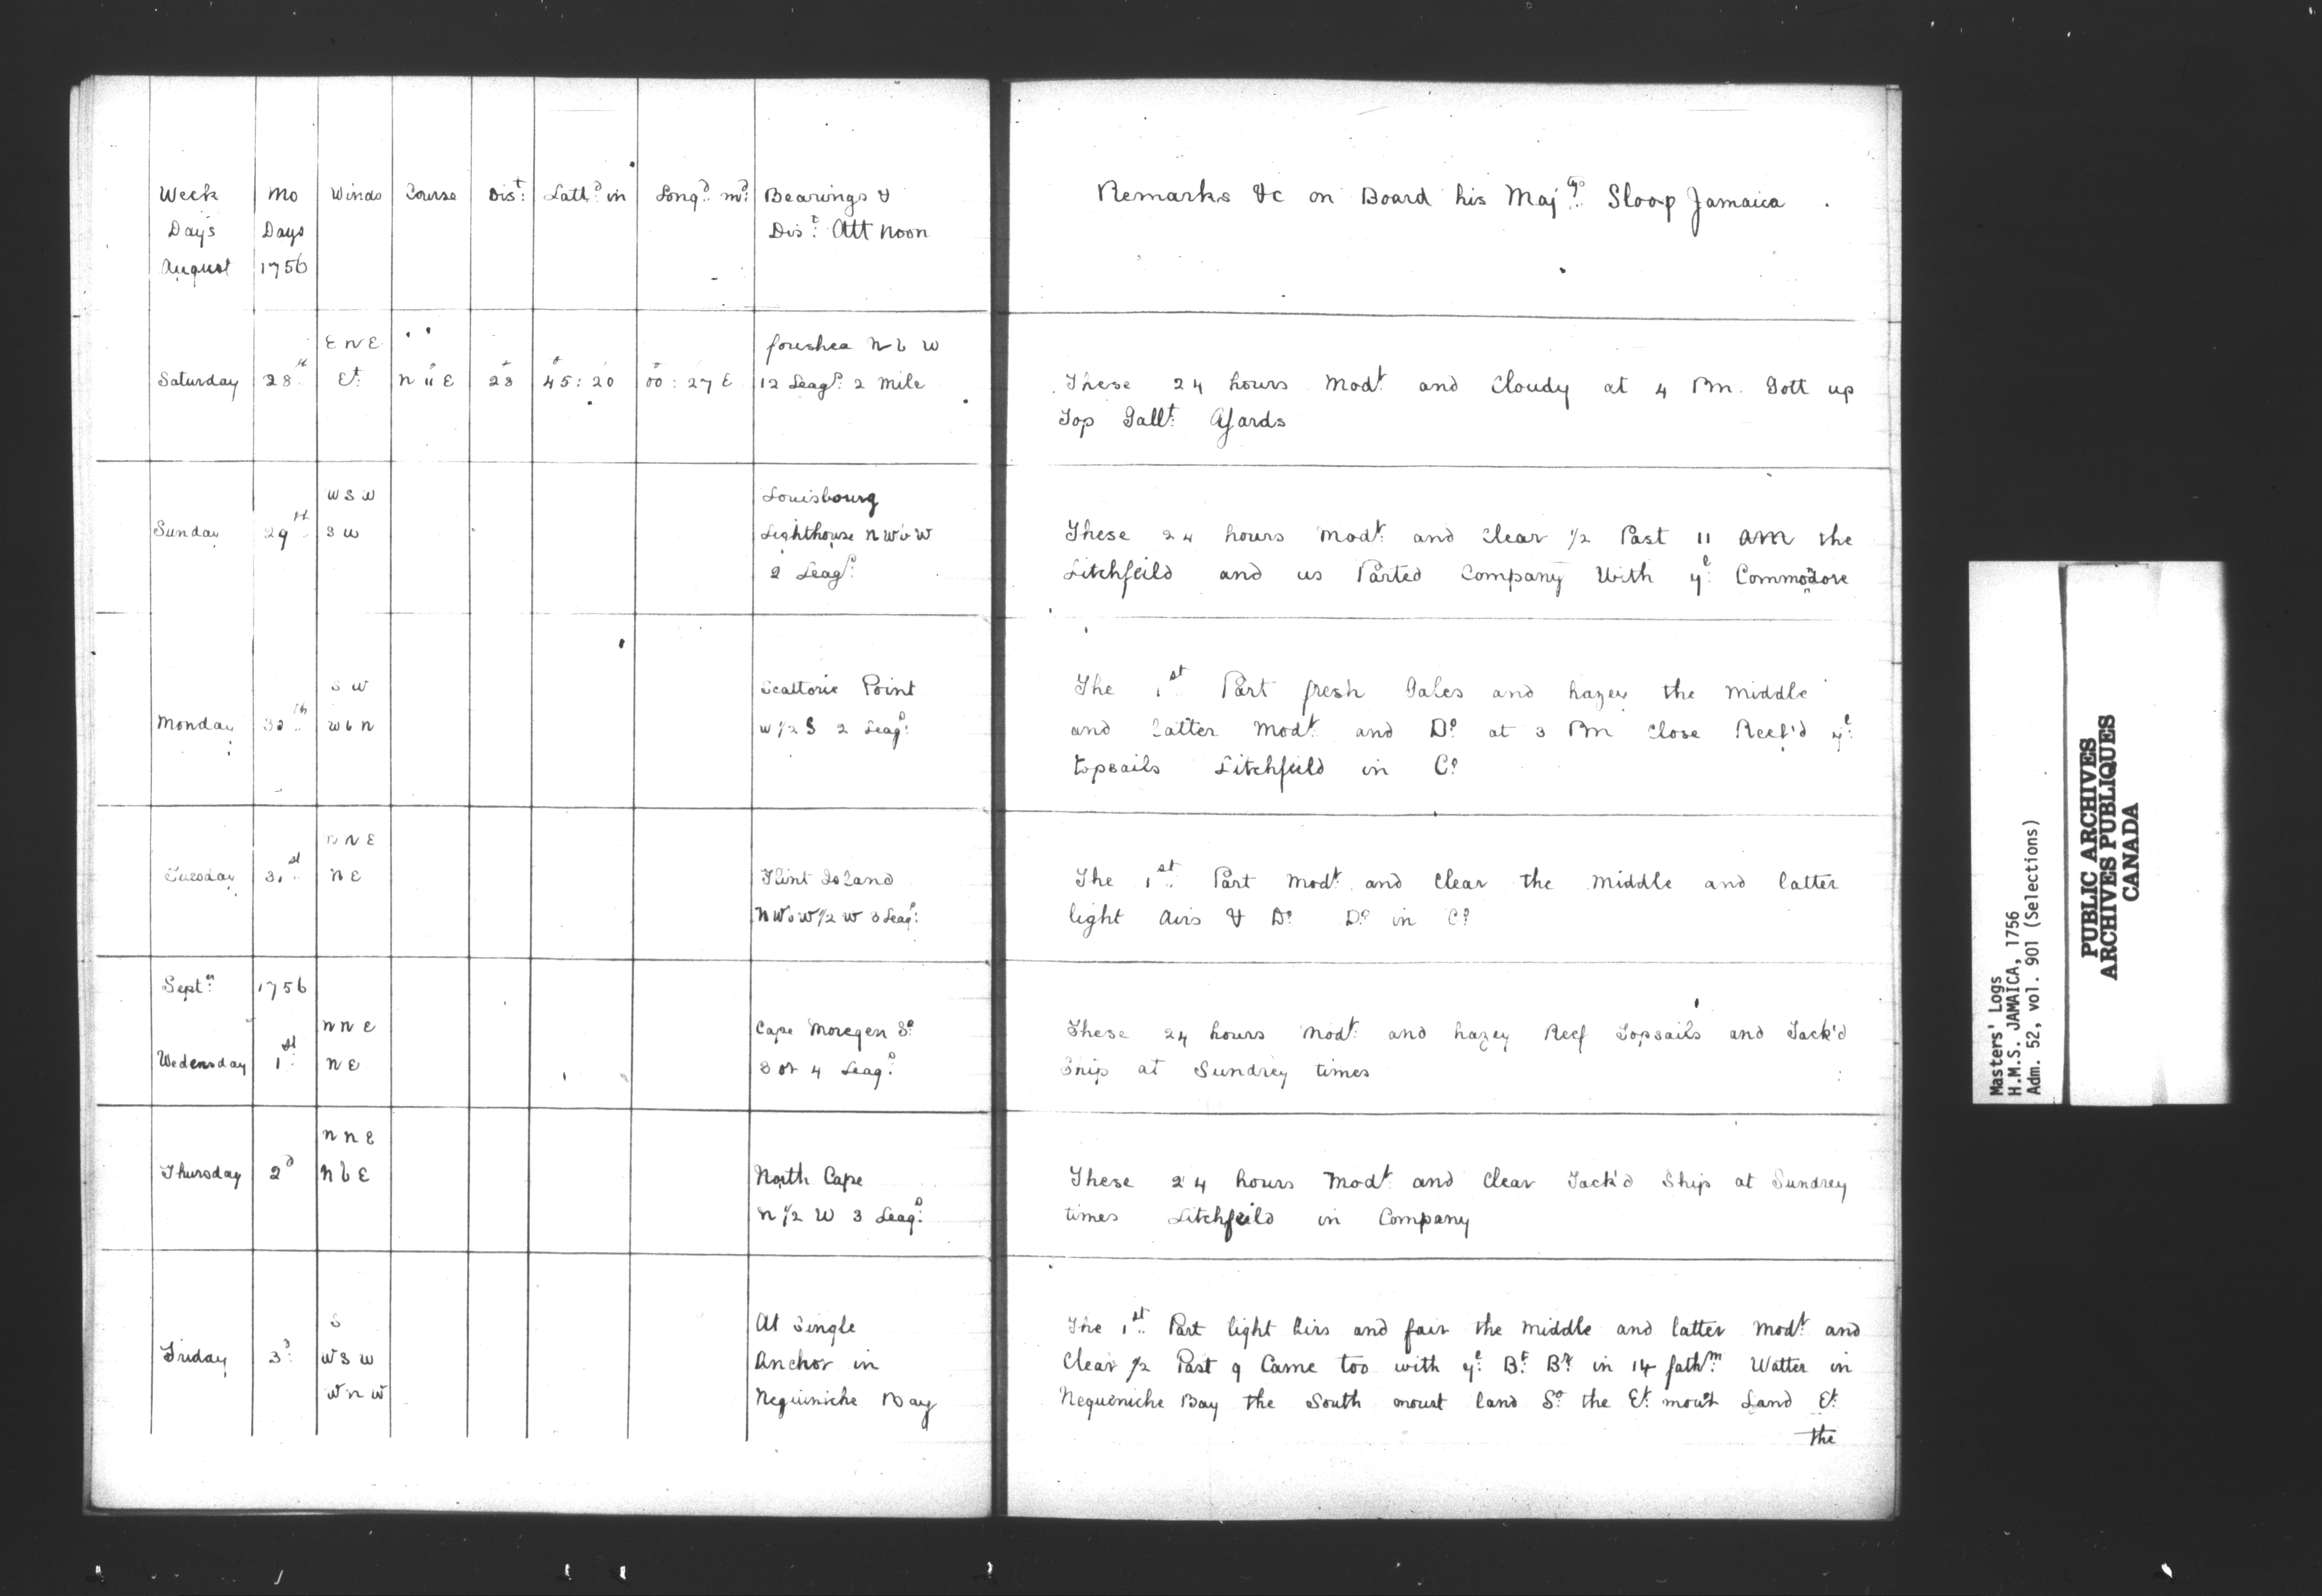 Week Mo Winds Course Dist: Lattd: in Longd: md: Bearings &
Days Days Dist: Att Noon
August 1756
Remarks &c on Board his Majtys: Sloop Jamaica
ENE fourchea NbW
Saturday 28th Et: N 11 E 28 45:20 00:27 E 12 Leags: 2 mile
These 24 hours Modt: and Cloudy at 4 Pm. Gott up
Top Gallt: Yards
WSW Louisbourg
Sunday 29th SW Lighthouse NWbW
2 Leags:
These 24 hours Modt: and Clear 1/2 Past 11 am the
Litchfeild and us Parted Company With ye: Commodore
SW Scattorie Point
Monday 30th WbN W 1/2 S 2 Leags:
The 1st Part fresh Gales and hazey the middle
and Latter Modt: and Do: at 3 Pm Close Reef'd ye:
topsails Litchfeild in Co:
NNE
Tuesday 31st NE Flint Island
NWbW 1/2 W 3 Leags:
The 1st Part Modt: and Clear the middle and latter
light Airs & Do: Do: in Co:
Septr: 1756
NNE Cape Moregen So:
Wedensday 1st: NE 3 or 4 Leags:
These 24 hours Modt: and hazey Reef Topsails and Tack'd
Ship at Sundrey times
NNE
Thursday 2d NbE North Cape
N 1/2 W 3 Leags:
These 24 hours Modt: and Clear Tack'd Ship at Sundrey
times Litchfeild in Company
S At Single
Friday 3d: WSW Anchor in
WNW Nequiniche Bay
The 1st: Part light Airs and fair the middle and latter Modt: and
Clear 1/2 Past 9 Came too with ye: Bt: Br: in 14 fathm: Watter in
Nequiniche Bay the South moust land So: the Et: moust Land Et:
the
Masters' Logs
H.M.S. JAMAICA, 1756
Adm. 52, vol. 901 (Selections)
PUBLIC ARCHIVES
ARCHIVES PUBLIQUES
CANADA